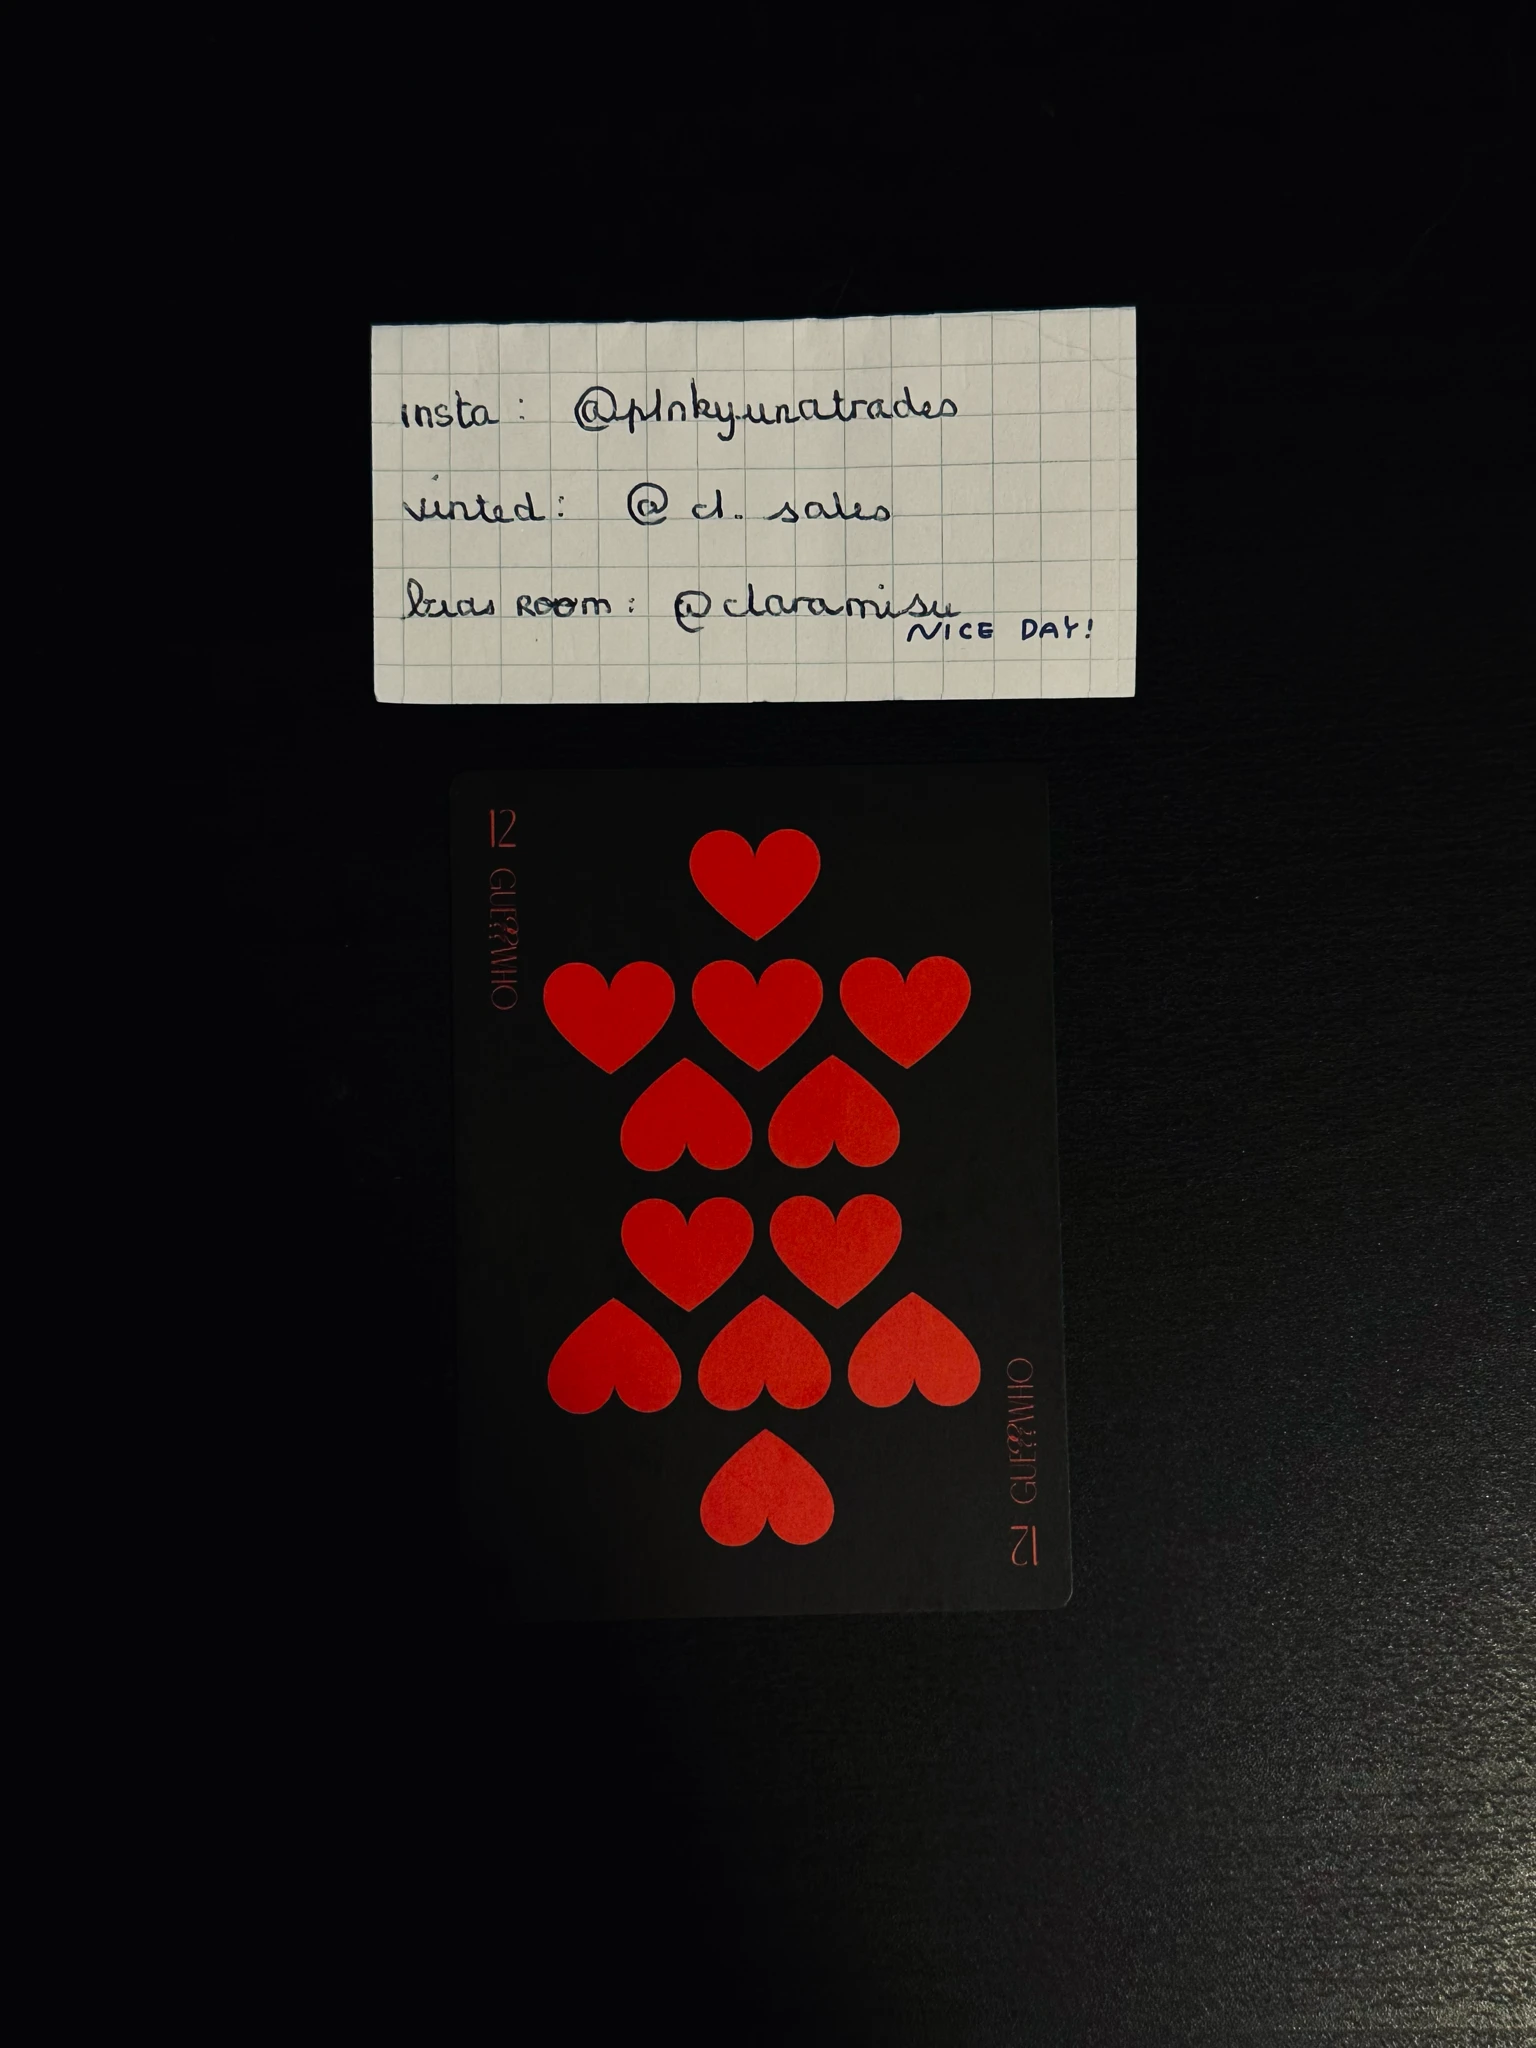 insta : @pinky.unatrades
vinted : @ cl. sales
bias ROOM : @claramisu
NICE DAY!
12 GUE??WHO
12 GUE??WHO